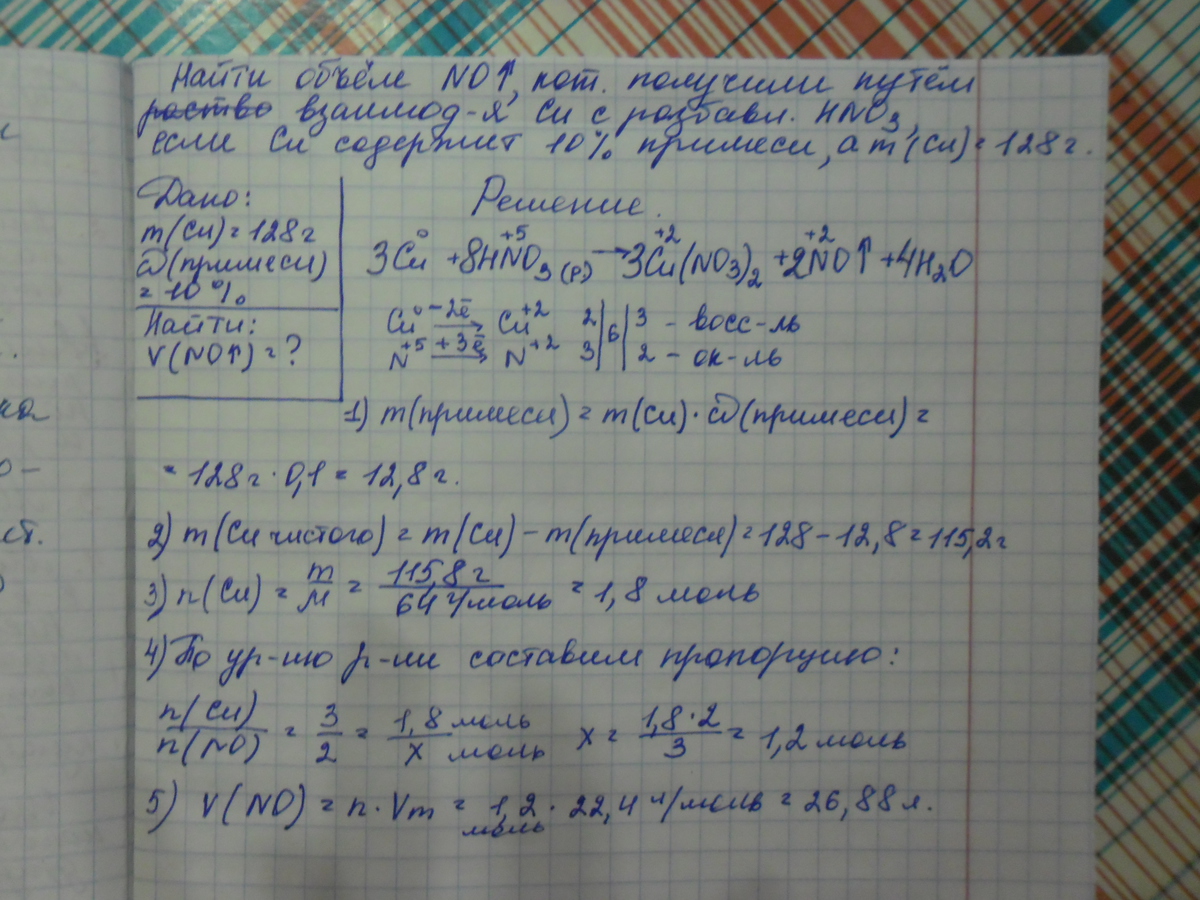 Найти объём NO↑, кот. получили путём
раство взаимод-я Cu с разбавл. HNO₃,
если Cu содержит 10% примеси, а m(Cu) = 128 г.
Дано:
m(Cu) = 128 г
ω(примеси)
= 10%
Найти:
V(NO↑) = ?
Решение.
3Cu⁰ + 8HN⁺⁵O₃ (р.) → 3Cu⁺²(NO₃)₂ + 2N⁺²O↑ + 4H₂O
Cu⁰ −2ē → Cu⁺² 2 | 6 | 3 – восс-ль
N⁺⁵ +3ē → N⁺² 3 | | 2 – ок-ль
1) m(примеси) = m(Cu) · ω(примеси) =
= 128 г · 0,1 = 12,8 г.
2) m(Cu чистого) = m(Cu) − m(примеся) = 128 − 12,8 = 115,2 г
3) n(Cu) = m/M = 115,8 г / 64 г/моль = 1,8 моль
4) По ур-ию р-ии составим пропорцию:
n(Cu)/n(NO) = 3/2 = 1,8 моль / x моль x = 1,8·2/3 = 1,2 моль
5) V(NO) = n · Vm = 1,2 моль · 22,4 л/моль = 26,88 л.